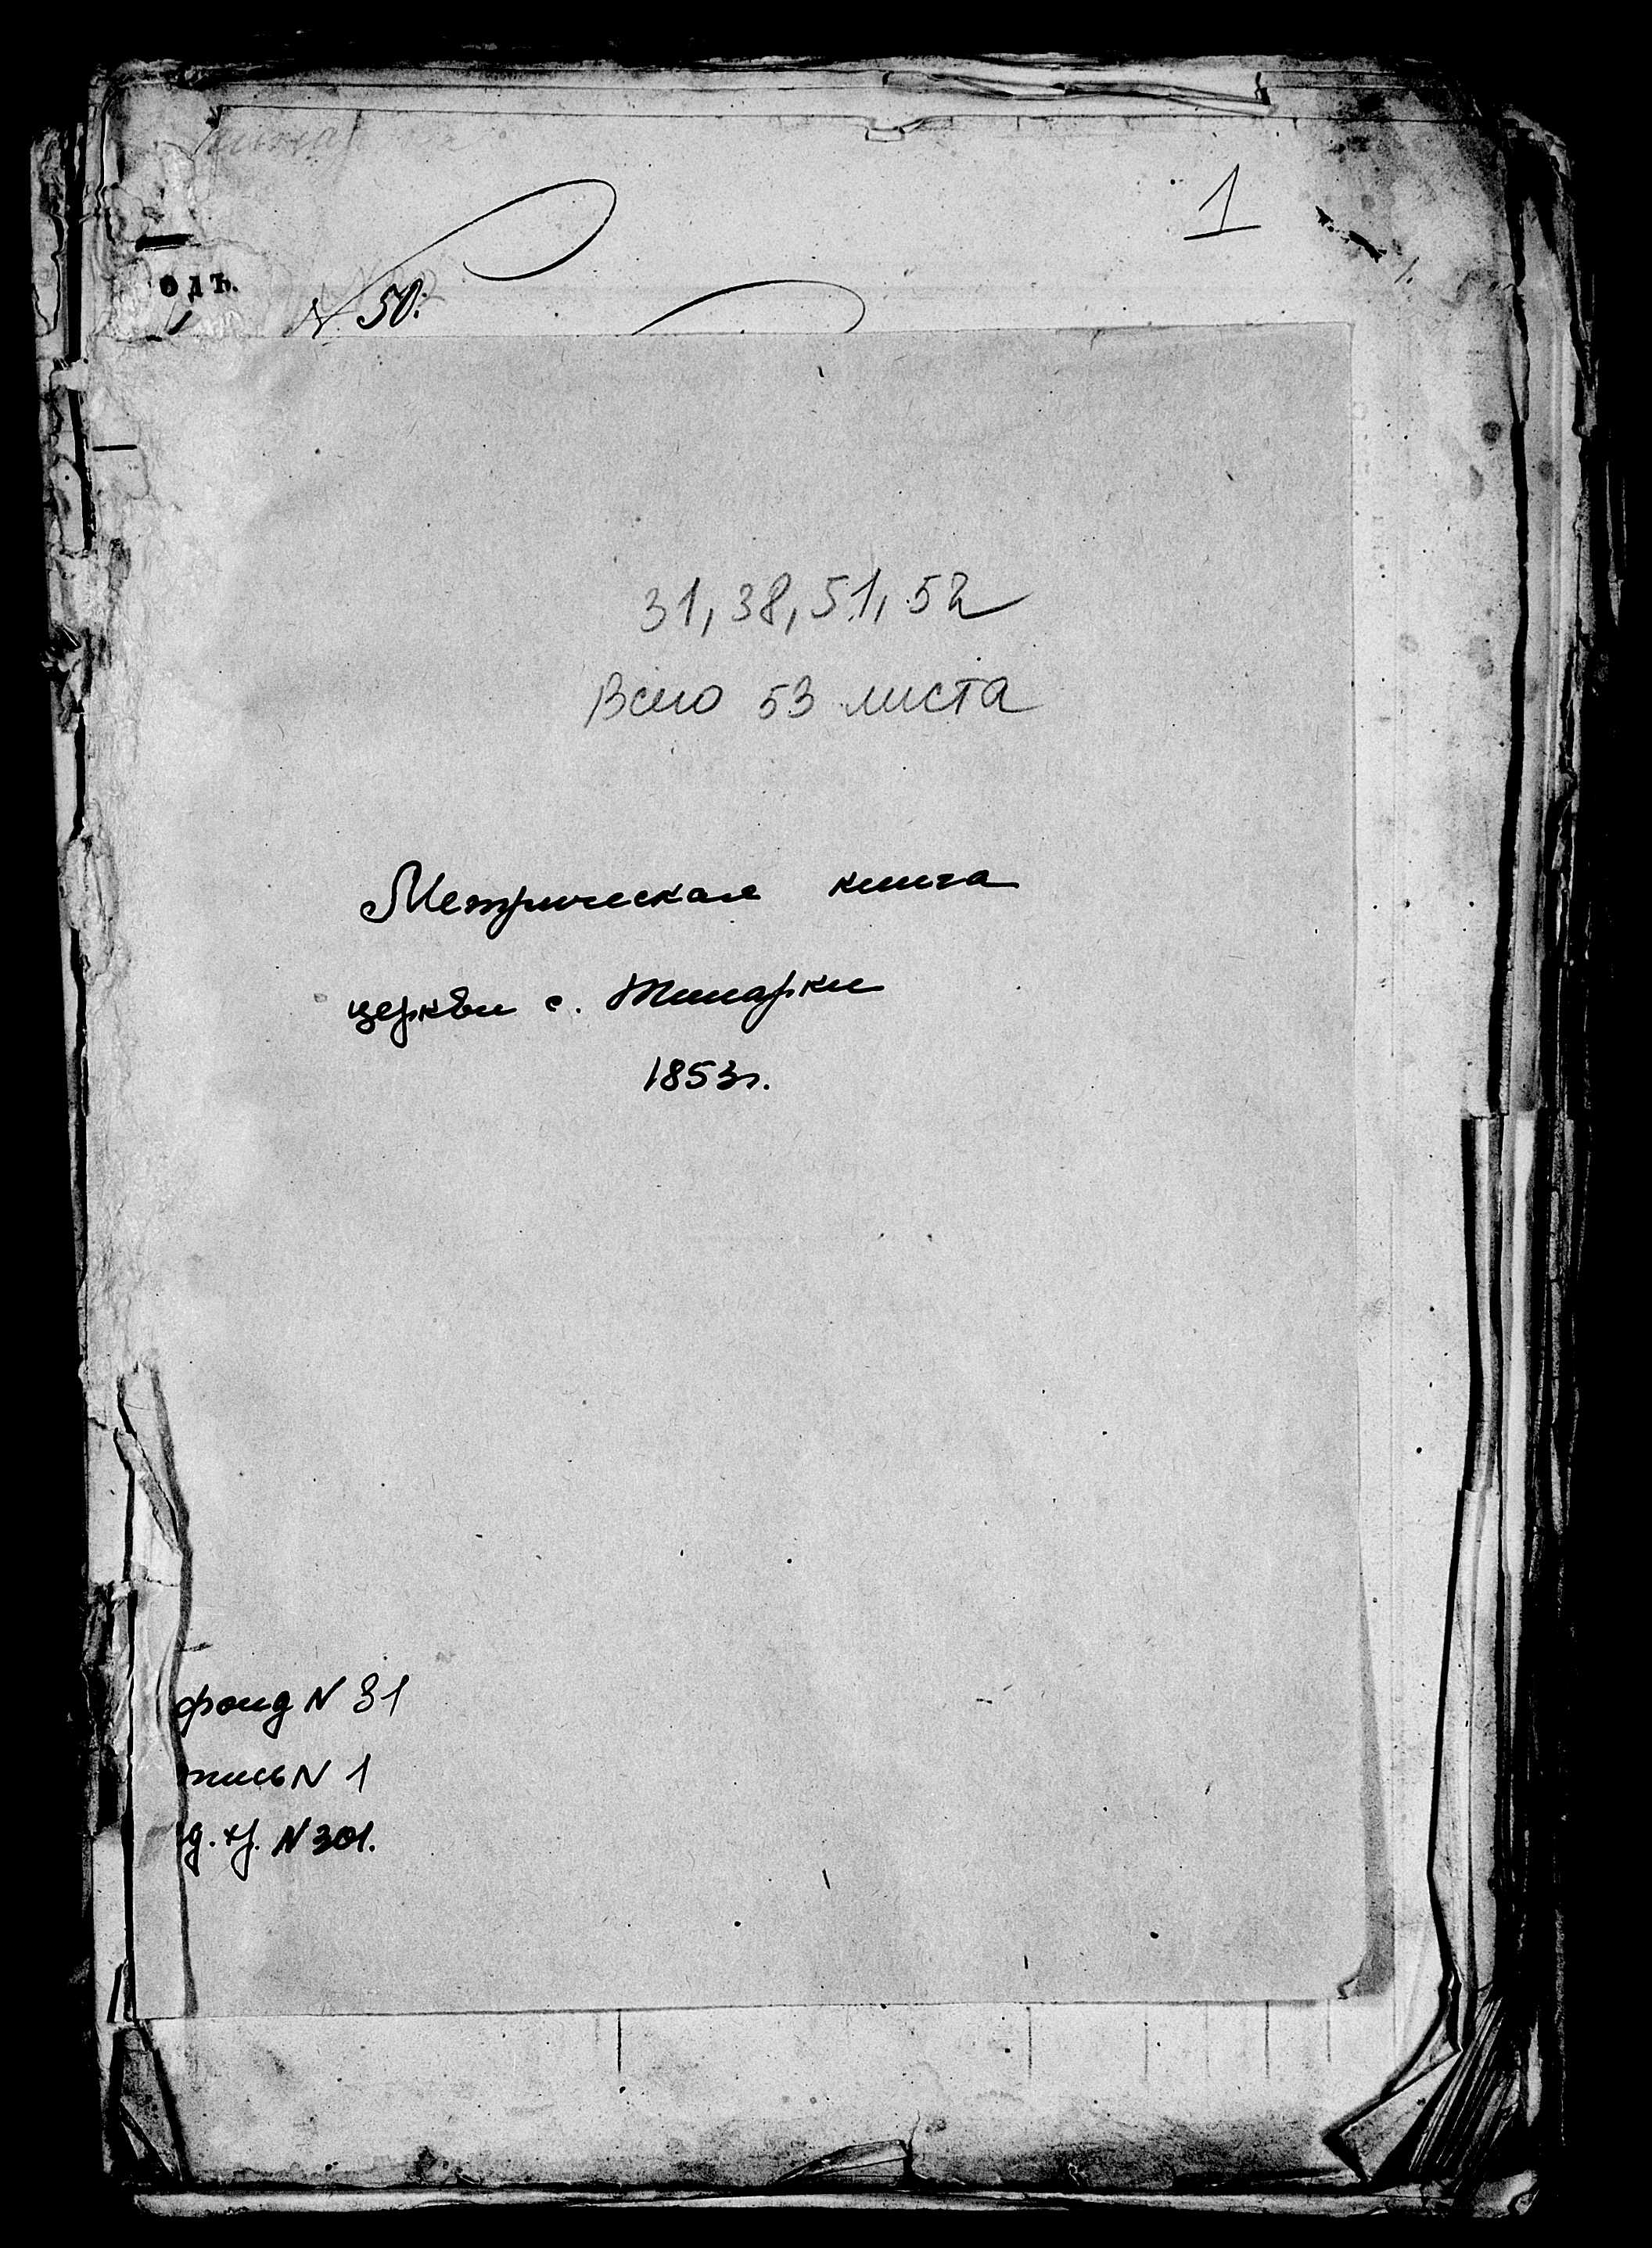 1
одъ.
N 50.
31, 38, 51, 52
Всего 53 листа
Метрическая книга
церкви с. Тинарки
1853г.
фонд N 31
пись N 1
д. х. N 301.